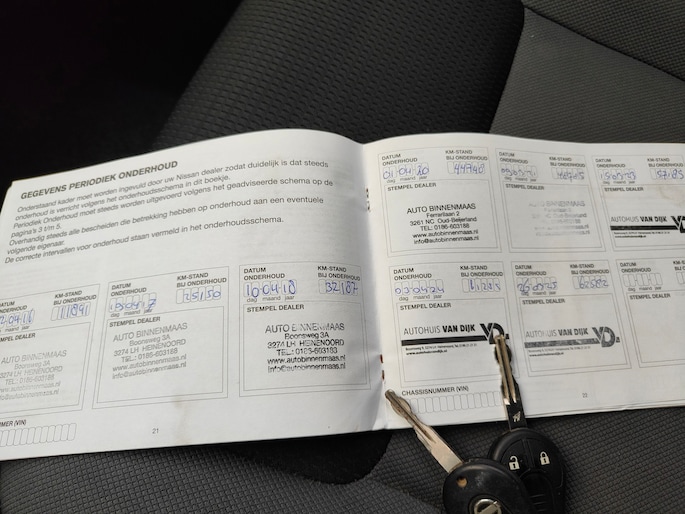 GEGEVENS PERIODIEK ONDERHOUD
Onderstaand kader moet worden ingevuld door uw Nissan dealer zodat duidelijk is dat steeds
onderhoud is verricht volgens het onderhoudsschema in dit boekje.
Periodiek Onderhoud moet steeds worden uitgevoerd volgens het geadviseerde schema op de
pagina's 3 t/m 5.
Overhandig steeds alle bescheiden die betrekking hebben op onderhoud aan een eventuele
volgende eigenaar.
De correcte intervallen voor onderhoud staan vermeld in het onderhoudsschema.
ONDERHOUD
KM-STAND
BIJ ONDERHOUD
11891
STEMPEL DEALER
AUTO BINNENMAAS
Boonsweg 3A
3274 LH HEINENOORD
TEL.: 0186-603188
www.autobinnenmaas.nl
info@autobinnenmaas.nl
DATUM
ONDERHOUD
KM-STAND
BIJ ONDERHOUD
25150
dag maand jaar
STEMPEL DEALER
AUTO BINNENMAAS
Boonsweg 3A
3274 LH HEINENOORD
TEL.: 0186-603188
www.autobinnenmaas.nl
info@autobinnenmaas.nl
DATUM
ONDERHOUD
KM-STAND
BIJ ONDERHOUD
10 04 18
32187
dag maand jaar
STEMPEL DEALER
AUTO BINNENMAAS
Boonsweg 3A
3274 LH HEINENOORD
TEL.: 0186-603188
www.autobinnenmaas.nl
info@autobinnenmaas.nl
(VIN)
21
DATUM
ONDERHOUD
KM-STAND
BIJ ONDERHOUD
01 04 20
44740
dag maand jaar
STEMPEL DEALER
AUTO BINNENMAAS
Ferrarilaan 2
3261 NC Oud-Beijerland
TEL: 0186-603188
www.autobinnenmaas.nl
info@autobinnenmaas.nl
DATUM
ONDERHOUD
KM-STAND
BIJ ONDERHOUD
dag maand jaar
STEMPEL DEALER
AUTO BINNENMAAS
DATUM
ONDERHOUD
KM-STAND
BIJ ONDERHOUD
dag maand jaar
STEMPEL DEALER
AUTOHUIS VAN DIJK
DATUM
ONDERHOUD
KM-STAND
BIJ ONDERHOUD
dag maand jaar
STEMPEL DEALER
AUTOHUIS VAN DIJK
YD.
www.autohuisvandijk.nl
DATUM
ONDERHOUD
KM-STAND
BIJ ONDERHOUD
dag maand jaar
STEMPEL DEALER
AUTOHUIS VAN DIJK
YD.
DATUM
ONDERHOUD
KM-STAND
BIJ ONDERHOUD
dag maand jaar
STEMPEL DEALER
CHASSISNUMMER (VIN)
22